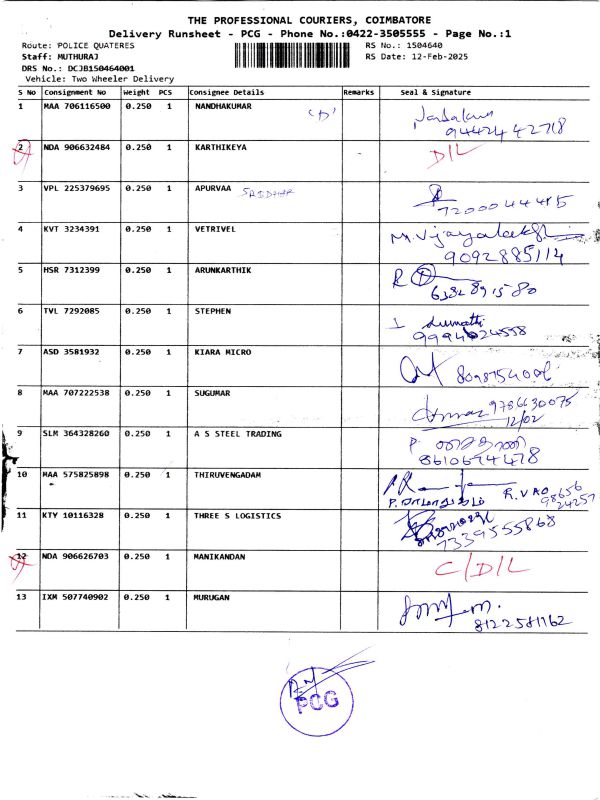 THE PROFESSIONAL COURIERS, COIMBATORE
Delivery Runsheet - PCG - Phone No.:0422-3505555 - Page No.:1
Route: POLICE QUATERES RS No.: 1504640
Staff: MUTHURAJ RS Date: 12-Feb-2025
DRS No.: DCJB150464001
Vehicle: Two Wheeler Delivery
S No Consignment No Weight PCS Consignee Details Remarks Seal & Signature
1 MAA 706116500 0.250 1 NANDHAKUMAR
9442442718
2 NDA 906632484 0.250 1 KARTHIKEYA D/L
3 VPL 225379695 0.250 1 APURVAA
7200044415
4 KVT 3234391 0.250 1 VETRIVEL M. Vijayalakshmi
9092885114
5 HSR 7312399 0.250 1 ARUNKARTHIK
6382891580
6 TVL 7292085 0.250 1 STEPHEN
9994024558
7 ASD 3581932 0.250 1 KIARA MICRO
8 MAA 707222538 0.250 1 SUGUMAR 9786630075
12/02
9 SLM 364328260 0.250 1 A S STEEL TRADING P
8610674478
10 MAA 575825898 0.250 1 THIRUVENGADAM
R.V RO 98656
24257
11 KTY 10116328 0.250 1 THREE S LOGISTICS
7339555868
12 NDA 906626703 0.250 1 MANIKANDAN C/D/L
13 IXM 507740902 0.250 1 MURUGAN
8122581162
PCG